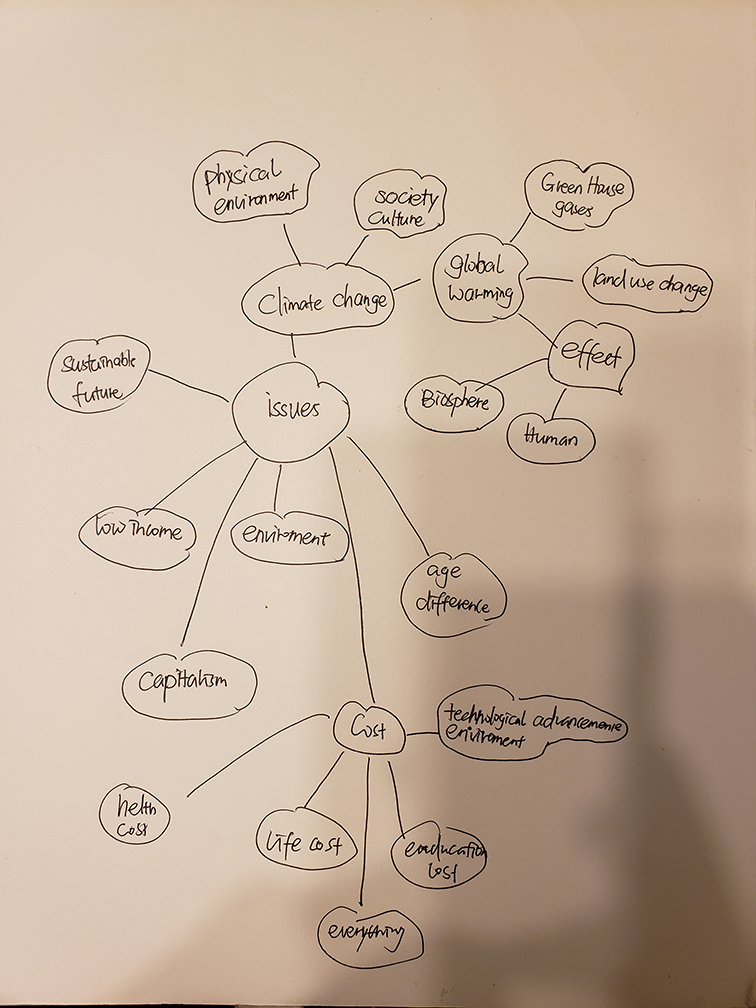 physical
environment
society
culture
Green House
gases
global
warming
land use change
Climate change
effect
Sustainable
future
issues
Biosphere
Human
low income
enviroment
age
difference
Capitalism
Cost
technological advancemente
enviroment
helth
cost
life cost
eaducation
cost
everything